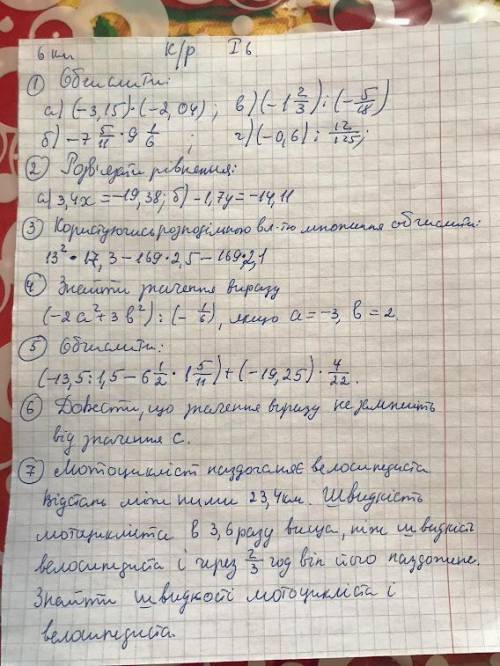 6 кл К/р I в.
① Обчислити:
а) (-3,15)·(-2,04); в) (-1 2/3):(-5/18)
б) -7 5/11 · 9 1/6 ; г) (-0,6) : 12/125;
② Розв'язати рівняння:
а) 3,4x = -19,38; б) -1,7y = -14,11
③ Користуючись розподільною вл-тю множення обчислити:
13² · 17,3 - 169 · 2,5 - 169 · 2,1
④ Знайти значення виразу
(-2a² + 3b²) : (- 1/6), якщо a = -3, b = 2.
⑤ Обчислити:
(-13,5 : 1,5 - 6 1/2 · 1 5/11) + (-19,25) · 4/22.
⑥ Довести, що значення виразу не залежить
від значення с.
⑦ Мотоцикліст наздоганяє велосипедиста
Відстань між ними 23,4 км. Швидкість
мотоцикліста в 3,6 разу вища, ніж швидкість
велосипедиста і через 2/3 год він його наздожене.
Знайти швидкості мотоцикліста і
велосипедиста.